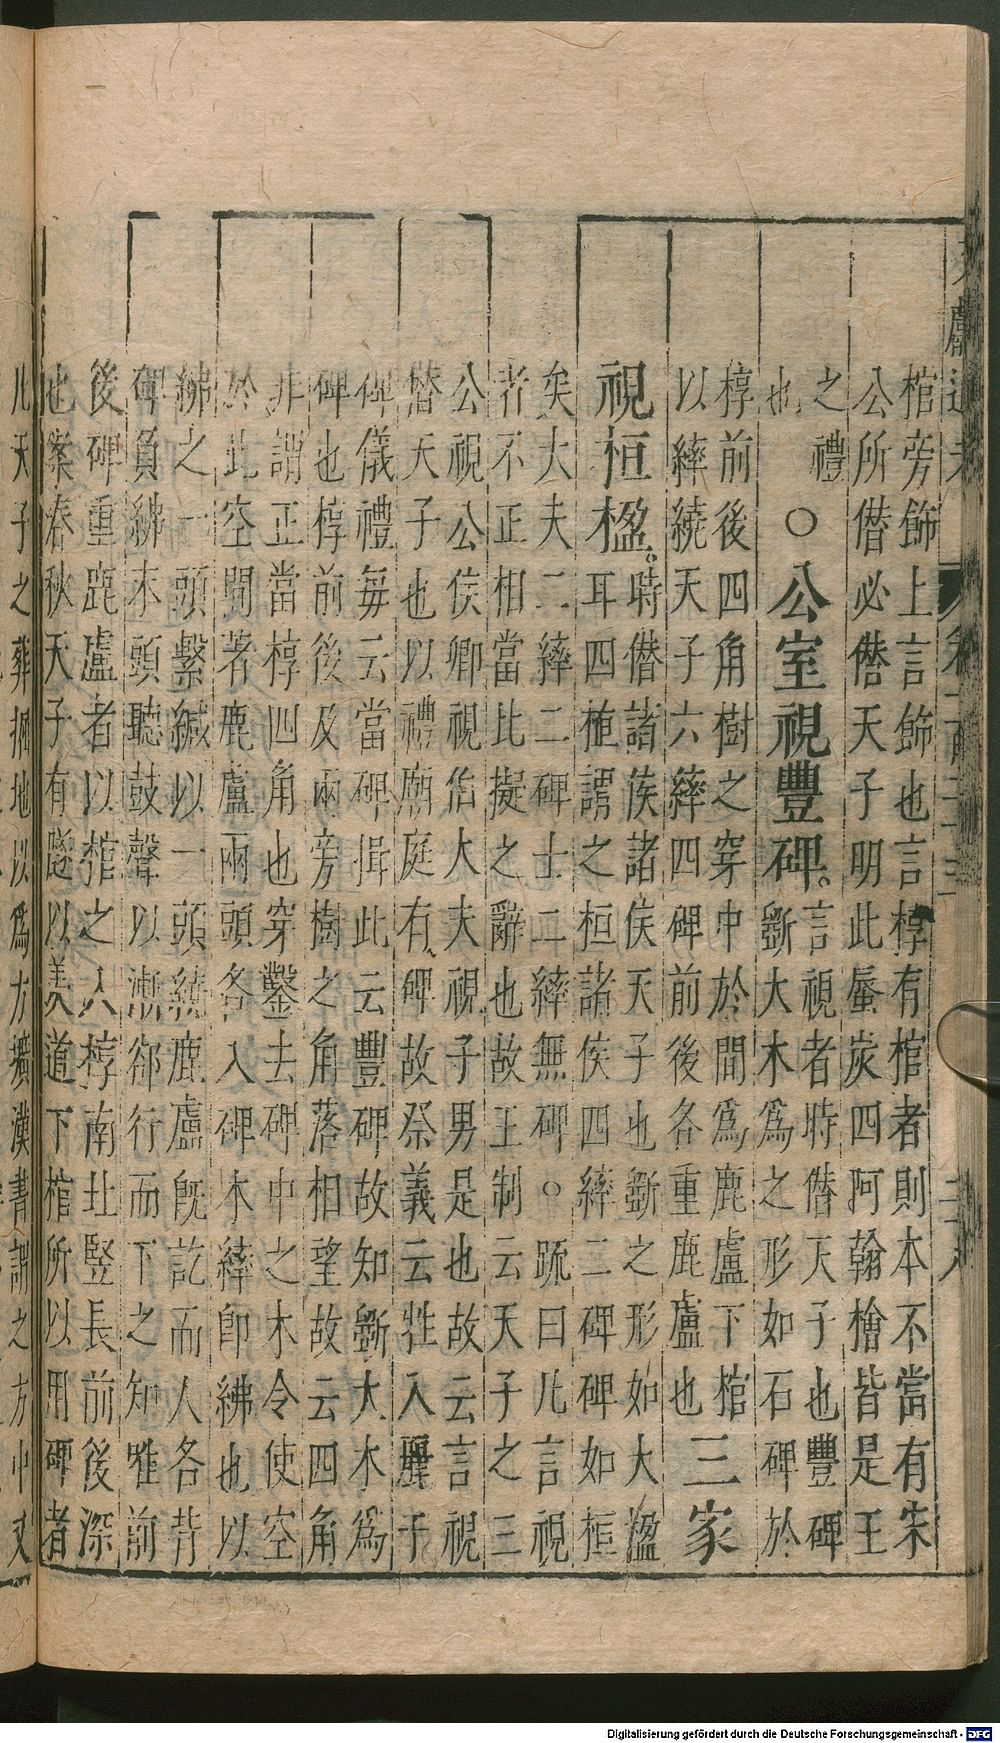 獻通考
棺旁飾上言飾也言椁有棺者則本不當有宋
公所僭必僭天子明此蜃炭四阿翰檜皆是王
之禮
也
○公室視豐碑。
言視者時僭天子也豐碑
斵大木爲之形如石碑於
椁前後四角樹之穿中於間爲鹿盧下棺
以繂繞天子六繂四碑前後各重鹿盧也
三家
視桓楹。
時僭諸侯諸侯天子也斵之形如大楹
耳四植謂之桓諸侯四繂二碑碑如桓
矣大夫二繂二碑士二繂無碑○疏曰凡言視
者不正相當比擬之辭也故王制云天子之三
公視公侯卿視伯大夫視子男是也故云言視
僭天子也以禮廟庭有碑故祭義云牲入麗于
碑儀禮每云當碑揖此云豐碑故知斵大木爲
碑也椁前後及兩旁樹之角落相望故云四角
非謂正當椁四角也穿鑿去碑中之木令使空
於此空間著鹿盧兩頭各入碑木繂卽紼也以
紼之一頭繫緘以一頭繞鹿盧旣訖而人各背
碑負紼末頭聽鼓聲以漸郤行而下之知唯前
後碑重鹿盧者以棺之入椁南北竪長前後深
也案春秋天子有隧以羡道下棺所以用碑者
凡天子之葬掘地以爲方壙漢書謂之方中又
Digitalisierung gefördert durch die Deutsche Forschungsgemeinschaft - DFG